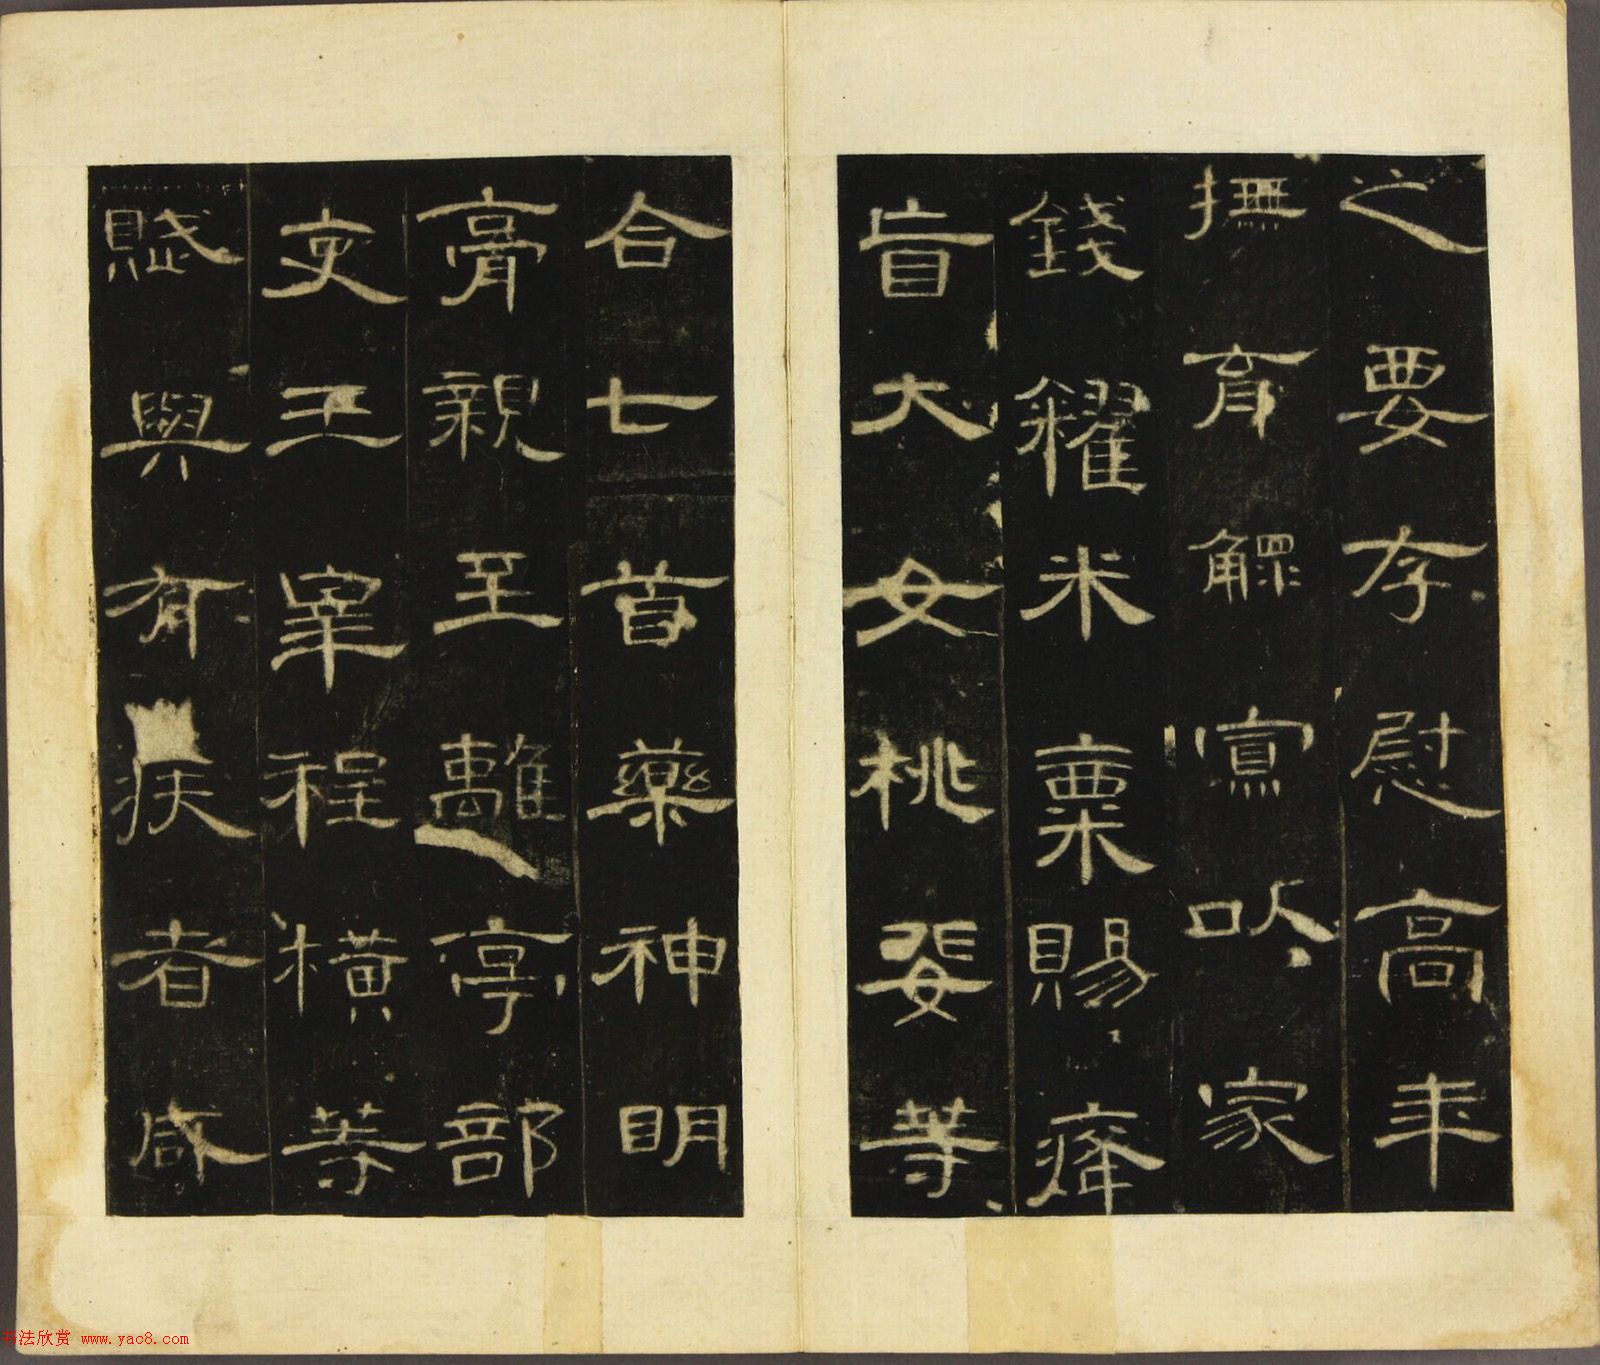 之要存慰高年
撫育鰥寡以家
錢糴米粟賜癃
盲大女桃婓等
合七首藥神明
膏親至離亭部
吏王宰程橫等
賦與有疾者咸
书法欣赏 www.yac8.com